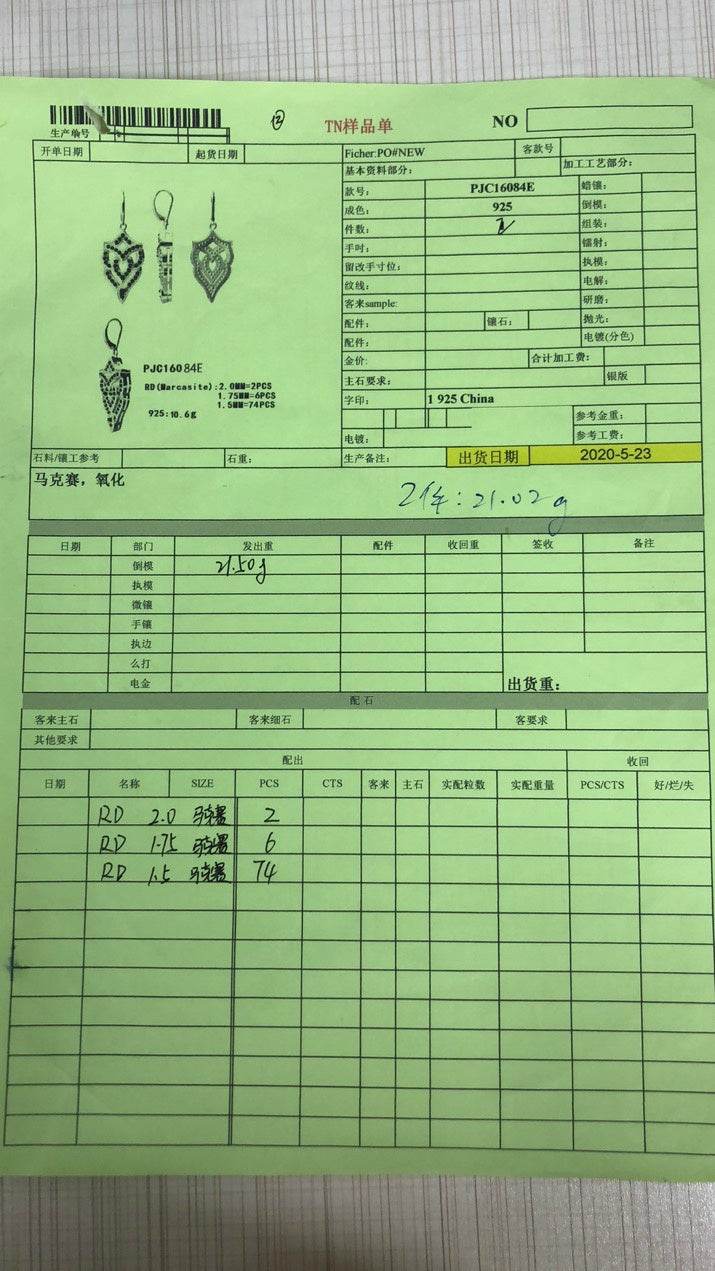 ⑫ TN样品单 NO
生产编号
开单日期 起货日期 Ficher:PO#NEW 客款号
基本资料部分: 加工工艺部分:
款号: PJC16084E 蜡镶:
成色: 925 倒模:
件数: 组装:
手吋: 镭射:
留改手寸位: 执模:
纹线: 电解:
客来sample: 研磨:
配件: 镶石: 抛光:
配件: 电镀(分色)
金价: 合计加工费:
主石要求: 银版
字印: 1 925 China
参考金重:
电镀: 参考工费:
PJC16084E
RD(Marcasite):2.0MM=2PCS
1.75MM=6PCS
1.5MM=74PCS
925:10.6g
石料/镶工参考 石重: 生产备注: 出货日期 2020-5-23
马克赛，氧化
2件:21.02g
日期 部门 发出重 配件 收回重 签收 备注
倒模 21.50g
执模
微镶
手镶
执边
么打
电金 出货重:
配石
客来主石 客来细石 客要求
其他要求
配出 收回
日期 名称 SIZE PCS CTS 客来 主石 实配粒数 实配重量 PCS/CTS 好/烂/失
RD 2.0 马克赛 2
RD 1.75 马克赛 6
RD 1.5 马克赛 74